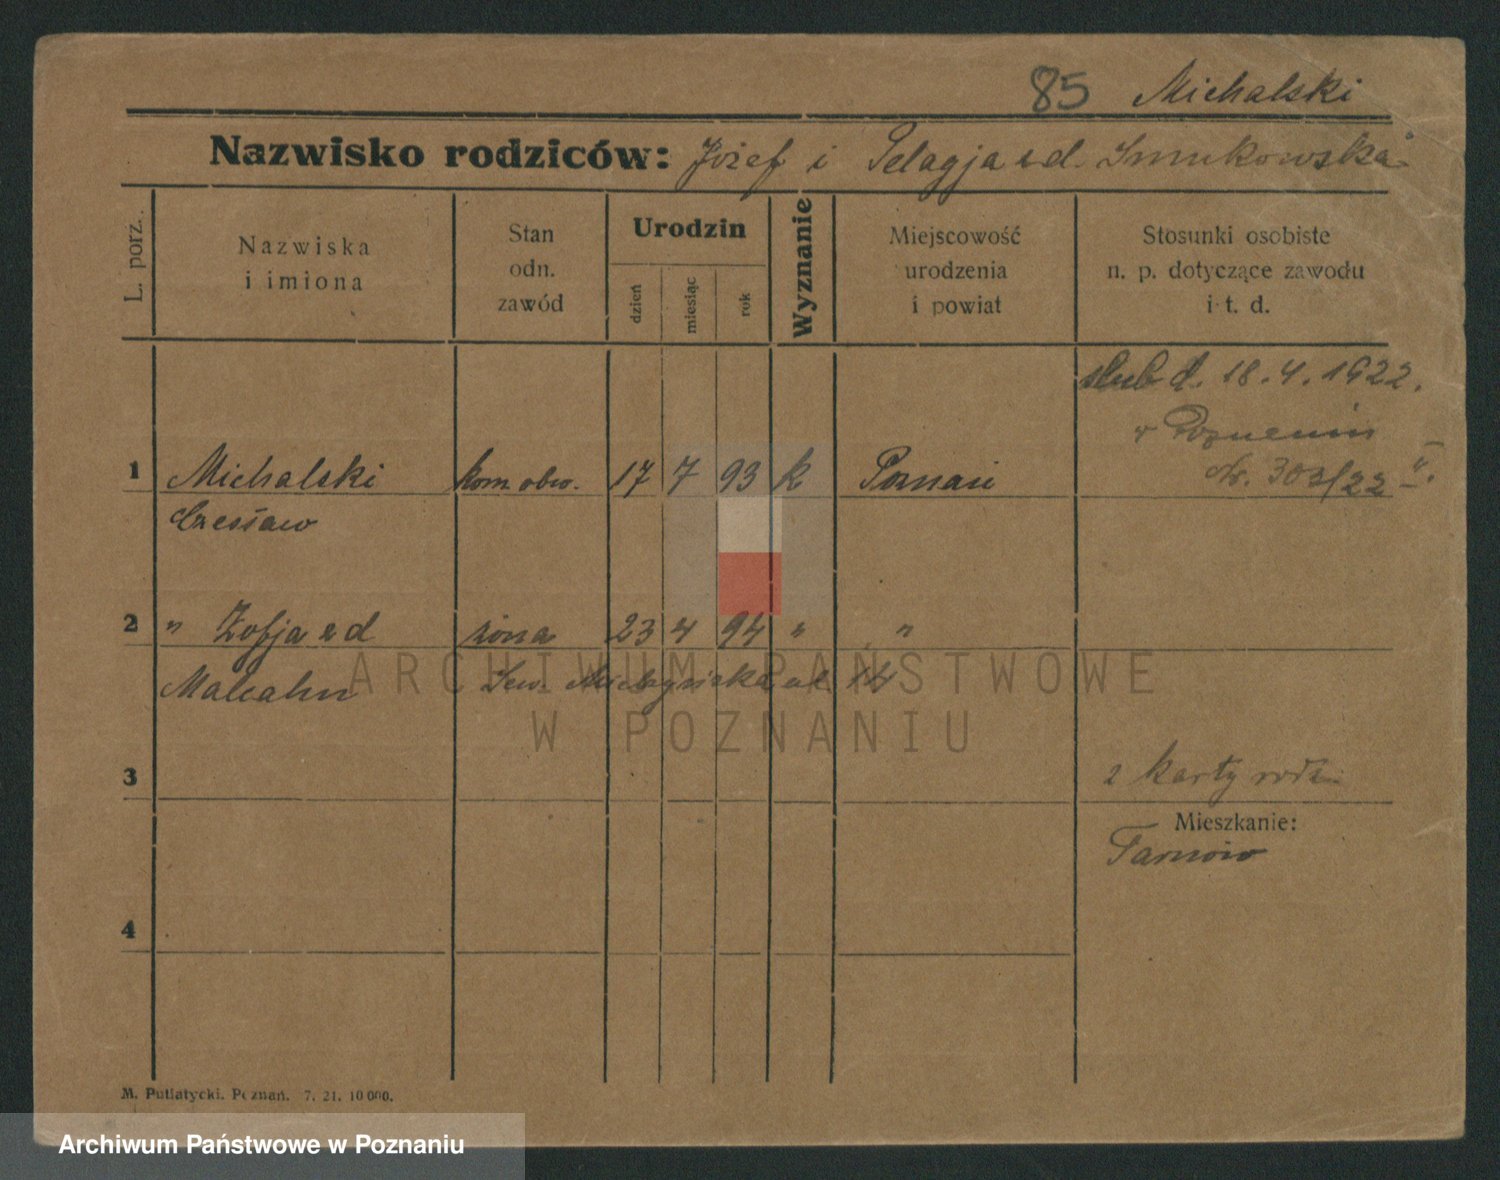 85 Michalski
Nazwisko rodziców: Józef i Pelagja z d. Smukowska
L. porz.
Nazwiska
i imiona
Stan
odn.
zawód
Urodzin
dzień
miesiąc
rok
Wyznanie
Miejscowość
urodzenia
i powiat
Stosunki osobiste
n. p. dotyczące zawodu
i t. d.
ślub d. 18.4.1922.
w Poznaniu
Nr. 303/22 II.
1 Michalski kom. obw. 17 7 93 k Poznań
Czesław
2 " Zofja z d żona 23 4 94 " "
ul 14
3
z karty rodz.
Mieszkanie:
Tarnów
4
M. Putiatycki. Poznań. 7. 21. 10 000.
ARCHIWUM PAŃSTWOWE
W POZNANIU
Archiwum Państwowe w Poznaniu